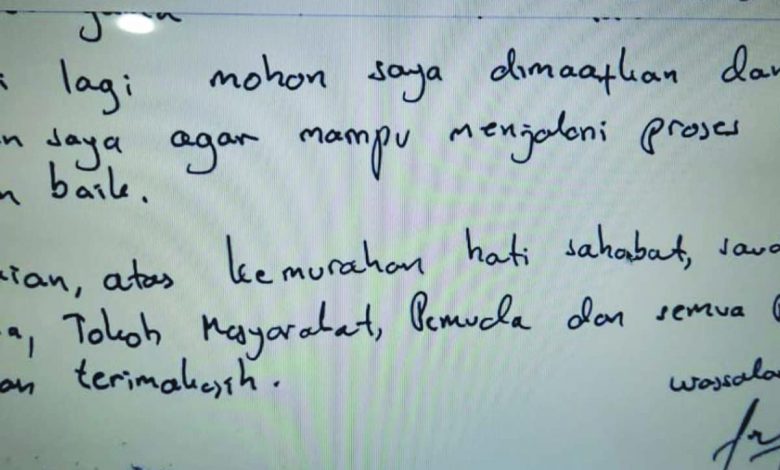 lagi mohon saya dimaafkan dan
n saya agar mampu menjalani proses
n baik.
ian, atas kemurahan hati sahabat, sauda
a, Tokoh Masyarakat, Pemuda dan semua p
an terimakasih.
wassala